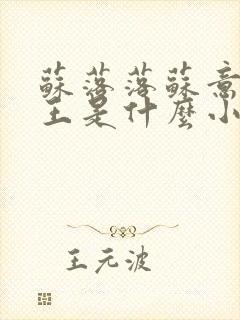 蘇落落蘇意
王是什麼小
王元波